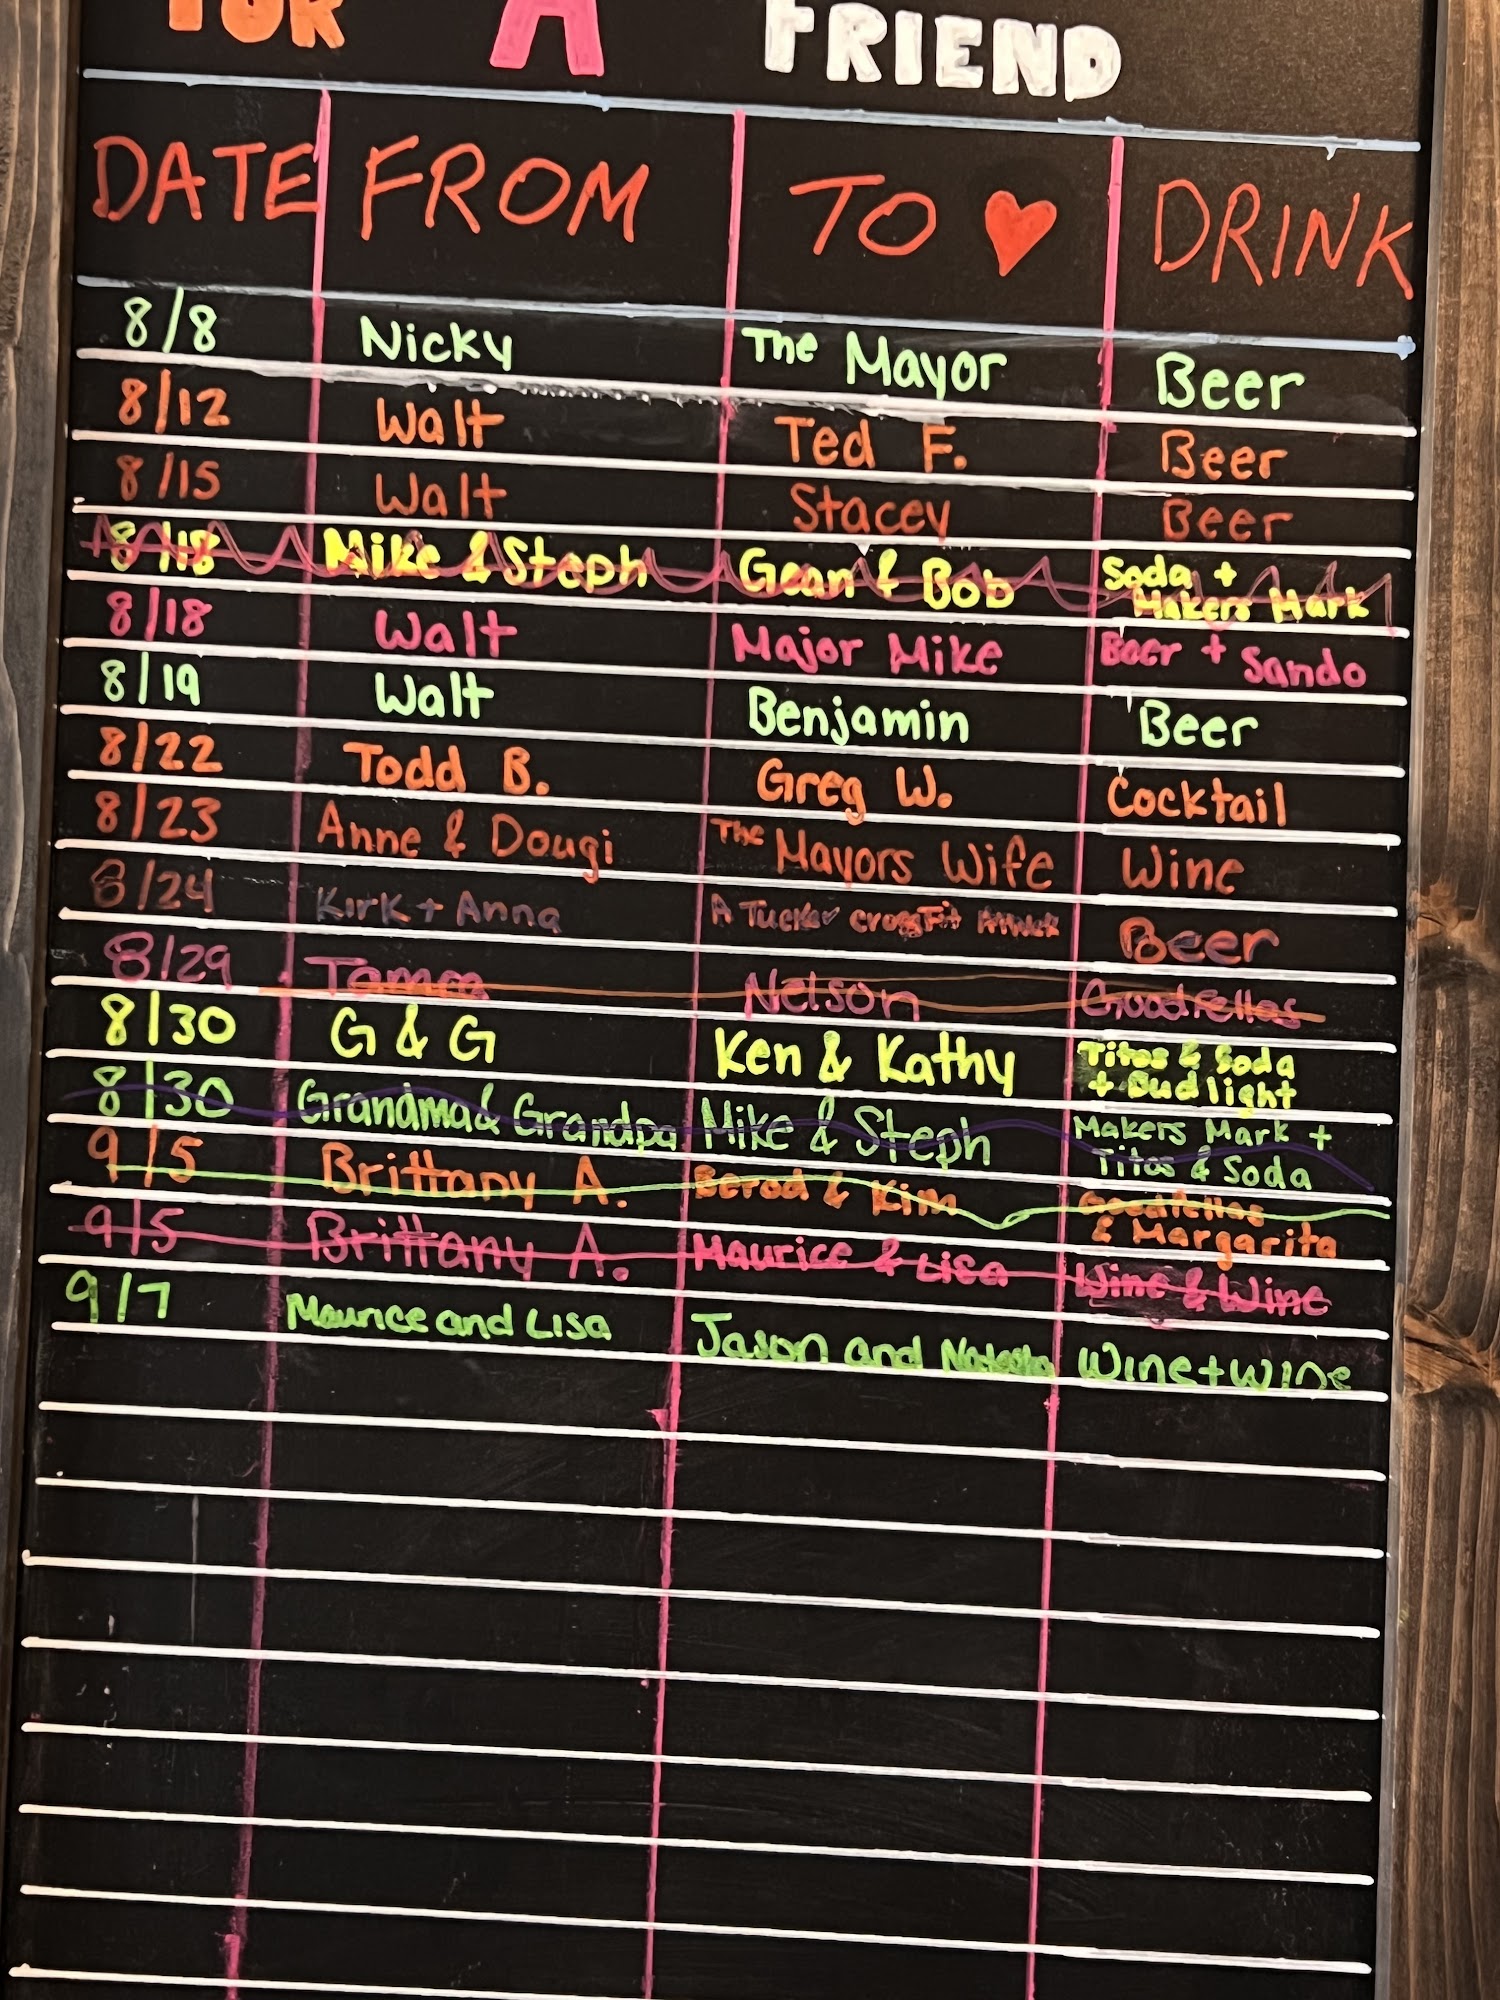 FOR A FRIEND
DATE FROM TO DRINK
8/8 Nicky The Mayor Beer
8/12 Walt Ted F. Beer
8/15 Walt Stacey Beer
8/18 Mike & Steph Gean & Bob Soda +
Makers Mark
8/18 Walt Major Mike Beer + Sando
8/19 Walt Benjamin Beer
8/22 Todd B. Greg W. Cocktail
8/23 Anne & Dougi The Mayors Wife Wine
8/24 Kirk + Anna A Tucker CrossFit Beer
8/29 Nelson Goodfellas
8/30 G & G Ken & Kathy Titos & Soda
+ Bud light
8/30 Grandma & Grandpa Mike & Steph Makers Mark +
Titos & Soda
9/5 Brittany A. & Kim Goodfellas
& Margarita
9/5 Brittany A. Maurice & Lisa Wine & Wine
9/7 Maurice and Lisa Jason and Natasha Wine + Wine